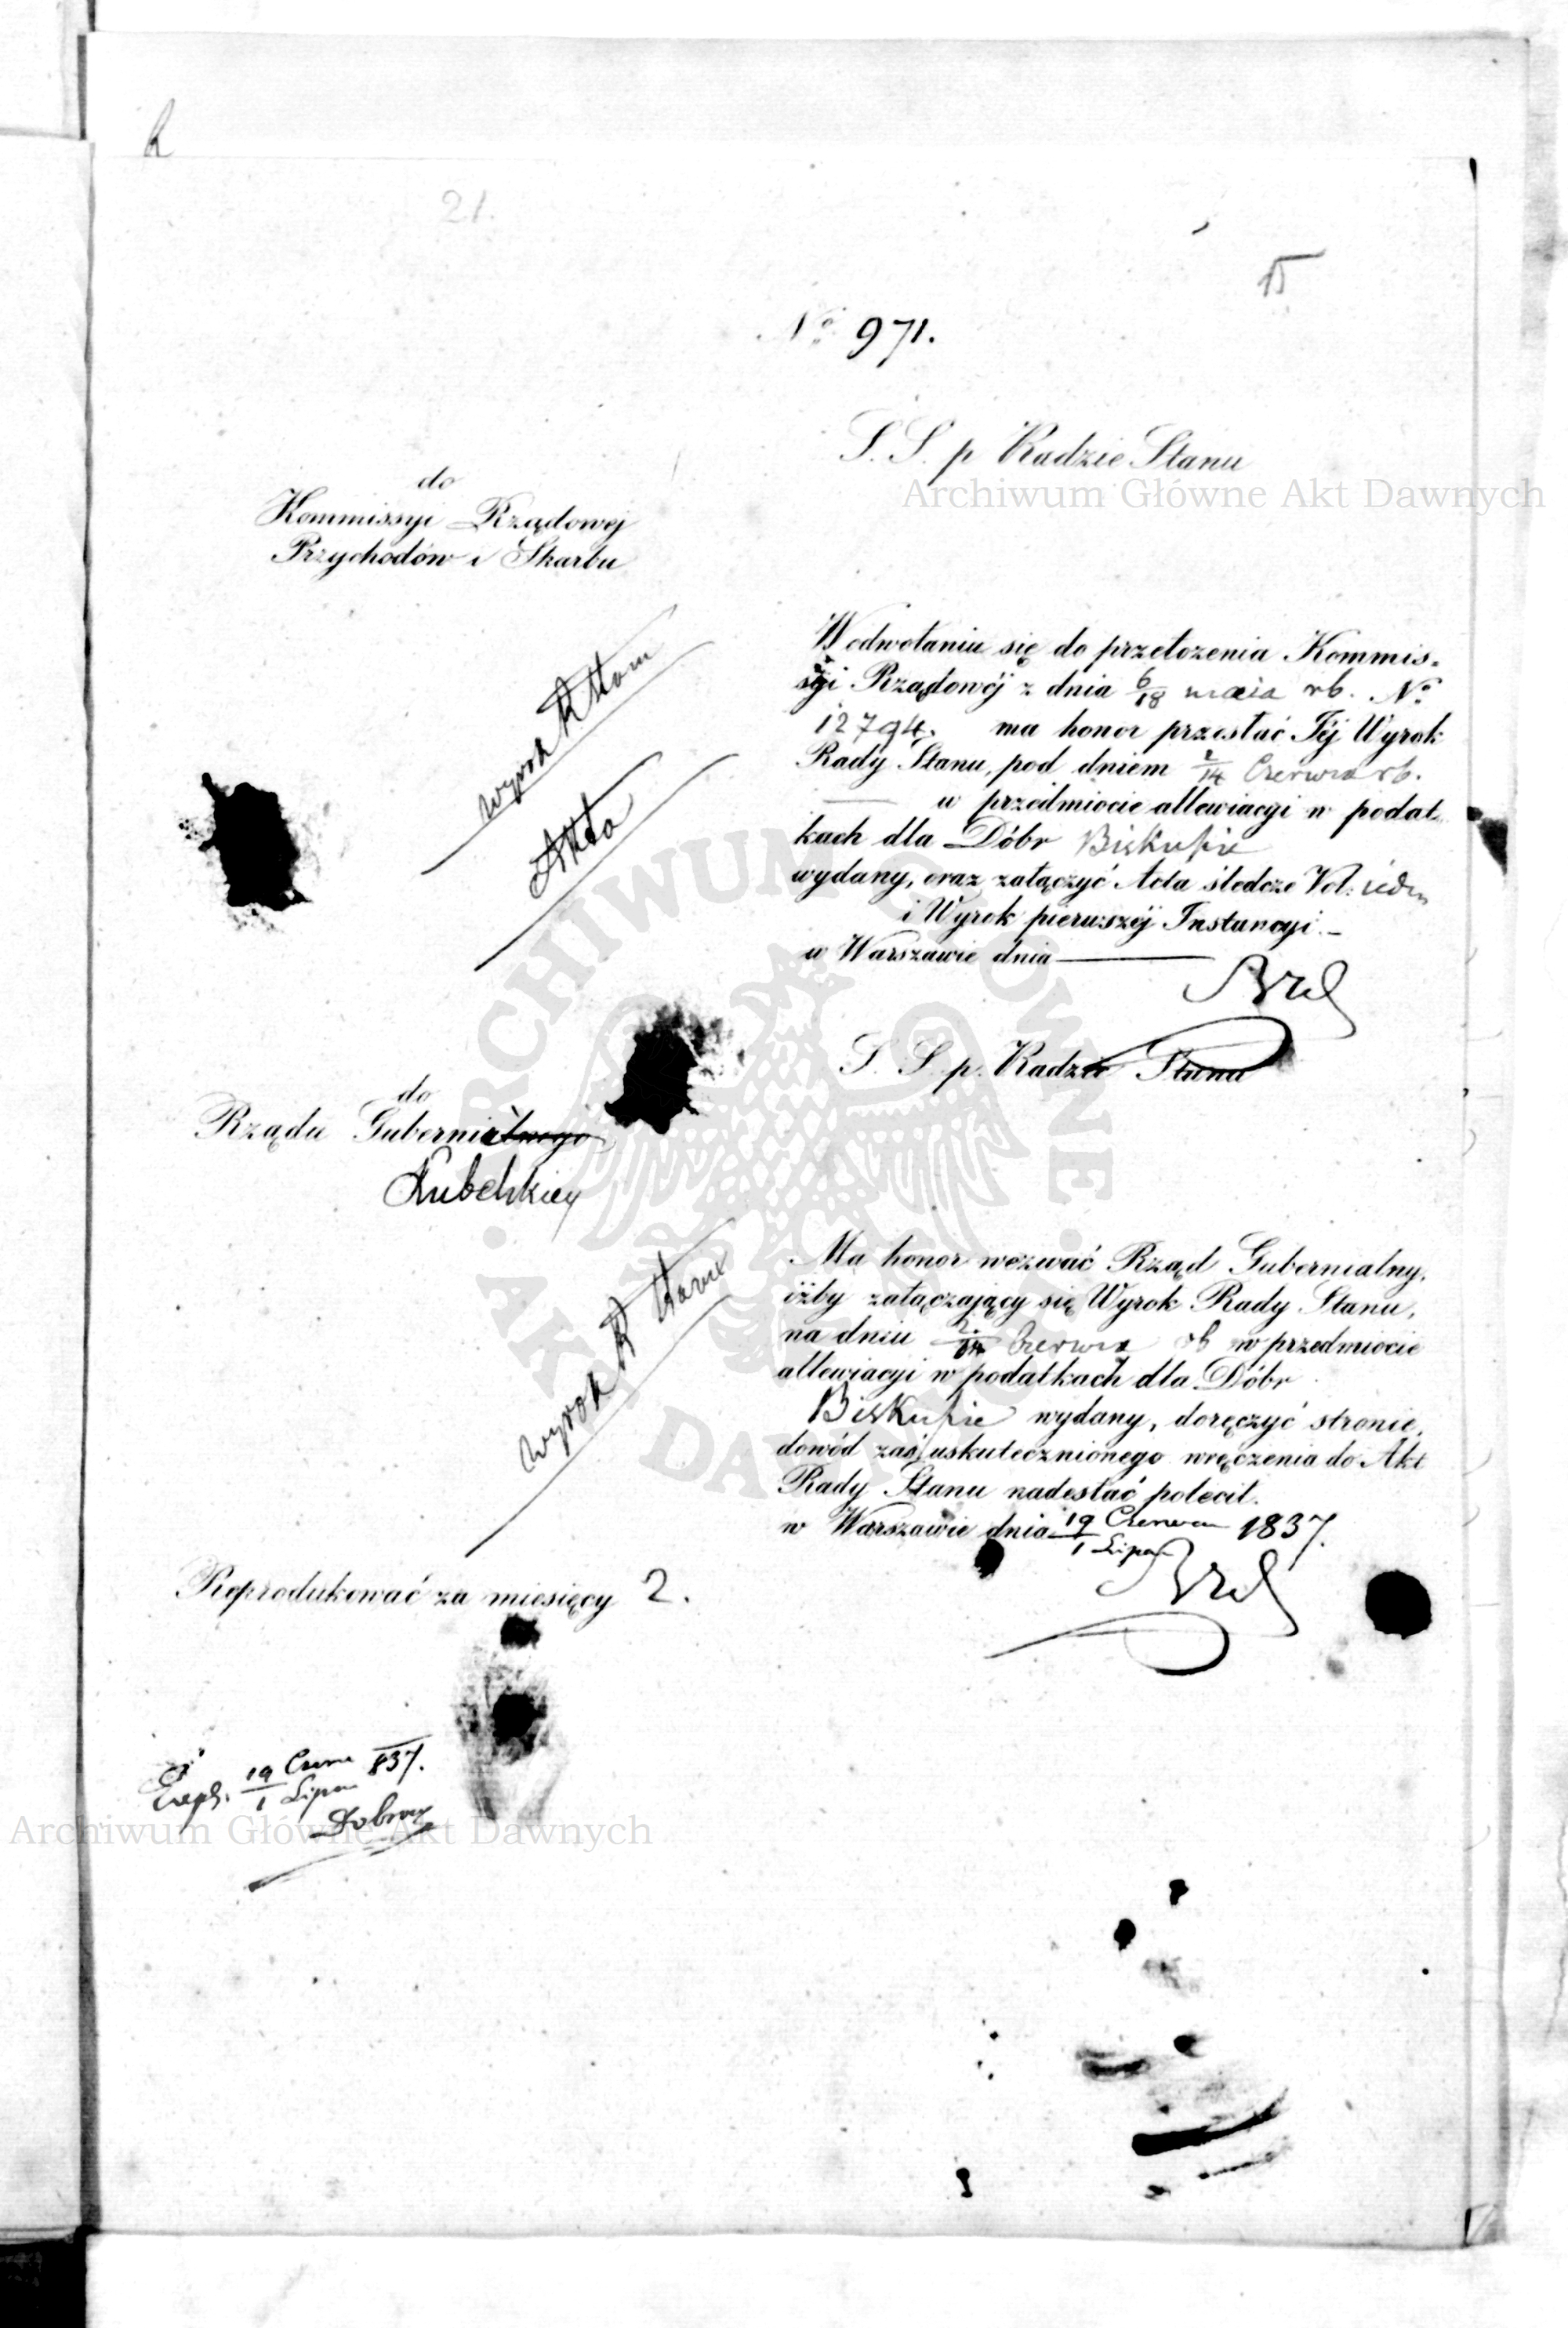 21.
15
No 971.
S. S. p Radzie Stanu
Archiwum Główne Akt Dawnych
do
Kommissyi Rządowej
Przychodów i Skarbu
W odwołaniu się do przełożenia Kommis-
syi Rządowéj z dnia 6/18 maia rb. No
12794. ma honor przesłać Téj Wyrok
Rady Stanu, pod dniem 2/14 Czerwca rb.
w przedmiocie allewiacyi w podat-
kach dla Dóbr Biskupie
wydany, oraz załączyć Acta śledcze Vol:
i Wyrok pierwszéj Instancyi.
w Warszawie dnia
Wyrok
Akta
S. S. p. Radzie Stanu
do
Rządu Gubernialnego
Lubelskiey
Ma honor wezwać Rząd Gubernialny,
iżby załączający się Wyrok Rady Stanu,
na dniu 2/14 Czerwca rb w przedmiocie
allewiacyi w podatkach dla Dóbr
Biskupie wydany, doręczyć stronie,
dowód zaś uskutecznionego wręczenia do Akt
Rady Stanu nadesłać polecił.
w Warszawie dnia 19 Czerwca / 1 Lipca 1837.
Wyrok
Reprodukować za miesięcy 2.
19 Czerw / 1 Lipca 837.
Archiwum Główne Akt Dawnych
ARCHIWUM GŁÓWNE
AKT DAWNYCH